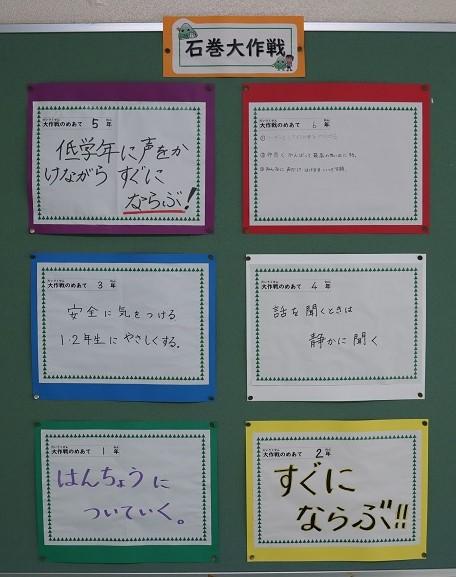 石巻大作戦
大作戦のめあて 5 年
低学年に声をか
けながら すぐに
ならぶ！
大作戦のめあて 6 年
大作戦のめあて 3 年
安全に気をつける
1・2年生にやさしくする。
大作戦のめあて 4 年
話を聞くときは
静かに聞く
大作戦のめあて 1 年
はんちょうに
ついていく。
大作戦のめあて 2 年
すぐに
ならぶ!!